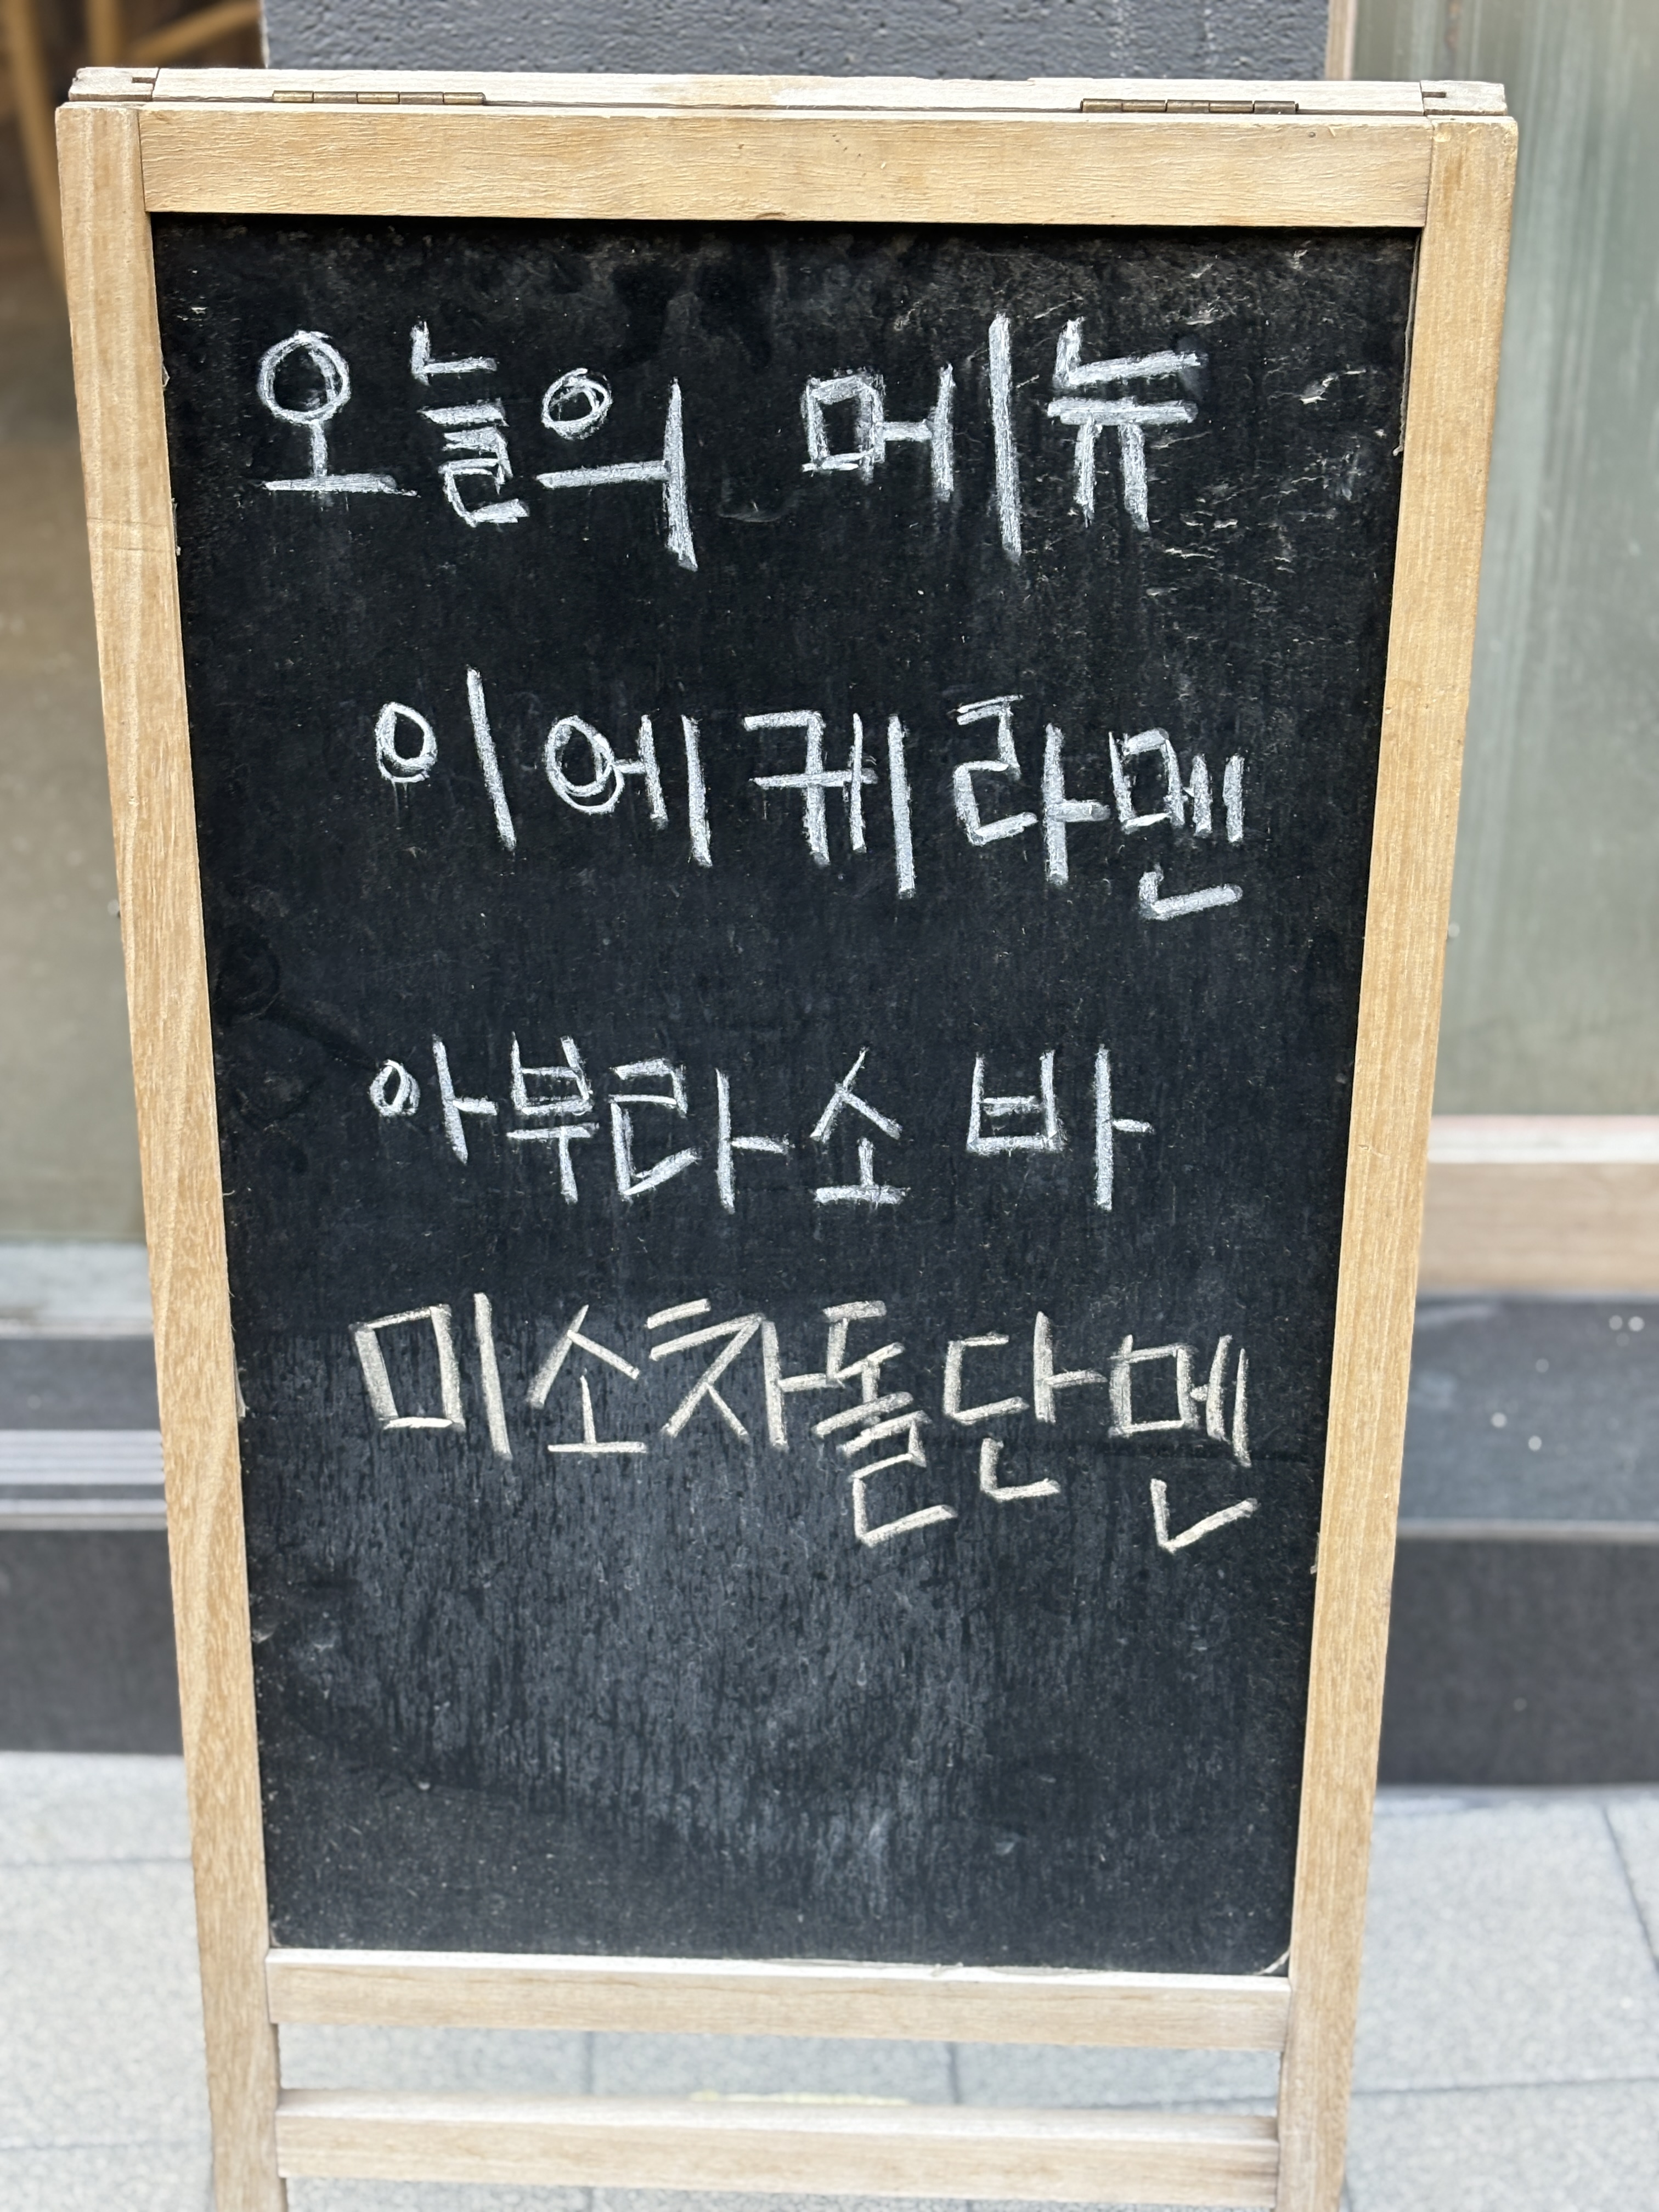 오늘의 메뉴
이에케라멘
아부라소바
미소차돌단멘